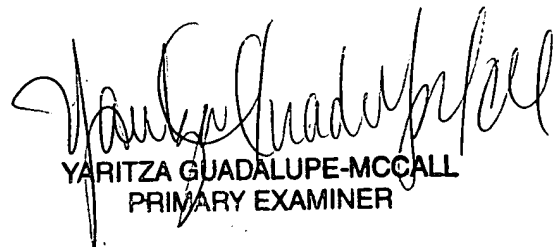 Yaritza Guadalupe-McCall
YARITZA GUADALUPE-MCCALL
PRIMARY EXAMINER